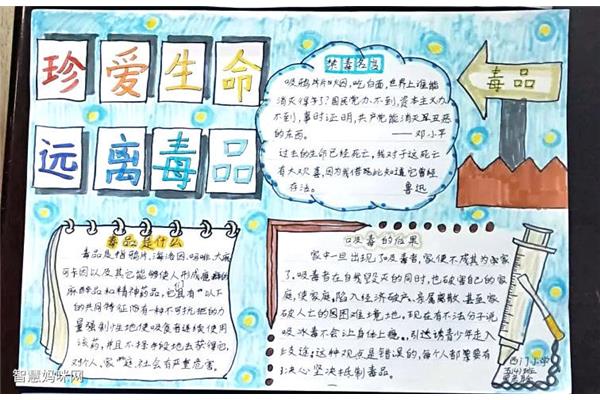 珍爱生命
远离毒品
禁毒名言
吸鸦片烟,吃白面,世界上谁能
消灭得了?国民党办不到,资本主义办
不到,事时证明,共产党能消灭丑恶
的东西。
——邓小平
过去的生命已经死亡,我对于这死亡
有大欢喜,因为我借此知道它曾经
存活。
鲁迅
毒品
毒品是什么
毒品是指鸦片、海洛因、吗啡、大麻
可卡因以及其它能够使人形成瘾
麻醉品和精神药品,它具有以下
的共同特征:他有一种不可抗拒的力
量强制性地使吸食者连续使用
该药,并且不择手段地去获得它,
对个人、家庭、社会有严重危害。
吸毒的后果
家中一旦出现了吸毒者,家便不成其为家
了,吸毒者在自我毁灭的同时,也破害自己的家
庭,使家庭陷入经济破产、亲属离散、甚至家
破人亡的困难境地。现在有不法分子说
吸冰毒不会让身体上瘾。引诱青少年走入
歧途,这种观点是错误的,每个人都要有
决心坚决抵制毒品。
智慧妈咪网